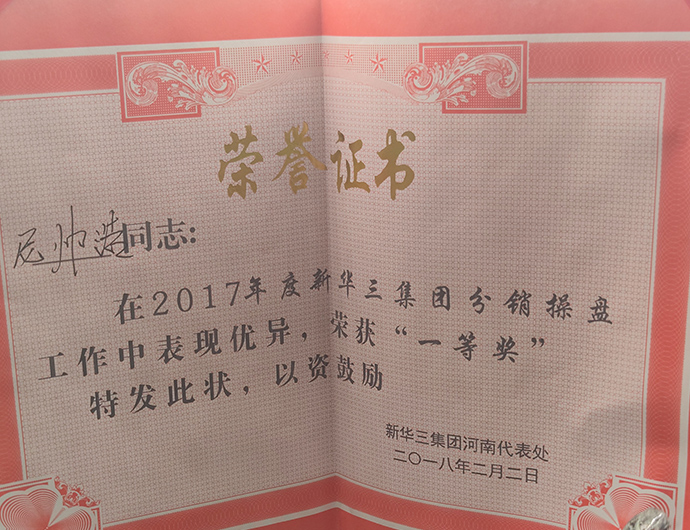 荣誉证书
尼帅浩同志:
在2017年度新华三集团分销操盘
工作中表现优异，荣获“一等奖”
特发此状，以资鼓励
新华三集团河南代表处
二〇一八年二月二日